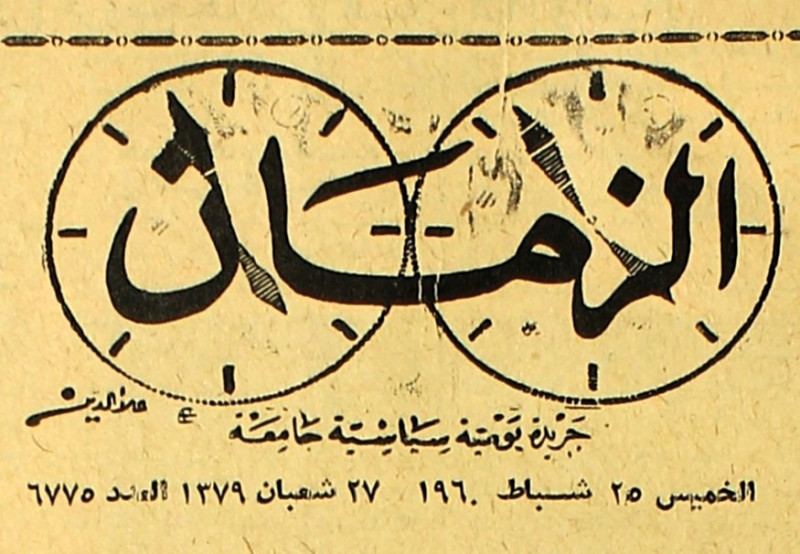 الزمان
علاء الدين
جريدة يومية سياسية جامعة
الخميس ٢٥ شباط ١٩٦٠ ٢٧ شعبان ١٣٧٩ العدد ٦٧٧٥